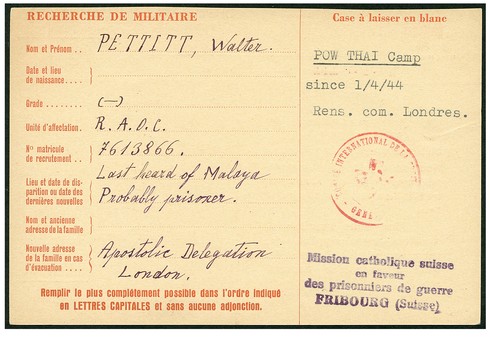 RECHERCHE DE MILITAIRE
Nom et Prénom .. PETTITT, Walter.
Date et lieu
de naissance....
Grade ........ (—)
Unité d'affectation. R.A.O.C.
N° matricule
de recrutement .. 7613866.
Lieu et date de dis-
parition ou date des
dernières nouvelles
Last heard of Malaya
Probably prisoner.
Nom et ancienne
adresse de la famille
Nouvelle adresse
de la famille en cas
d'évacuation ....
Apostolic Delegation
London.
Remplir le plus complètement possible dans l'ordre indiqué
en LETTRES CAPITALES et sans aucune adjonction.
Case à laisser en blanc
POW THAI Camp
since 1/4/44
Rens. com. Londres.
INTERNATIONAL DE LA
Mission catholique suisse
en faveur
des prisonniers de guerre
FRIBOURG (Suisse)